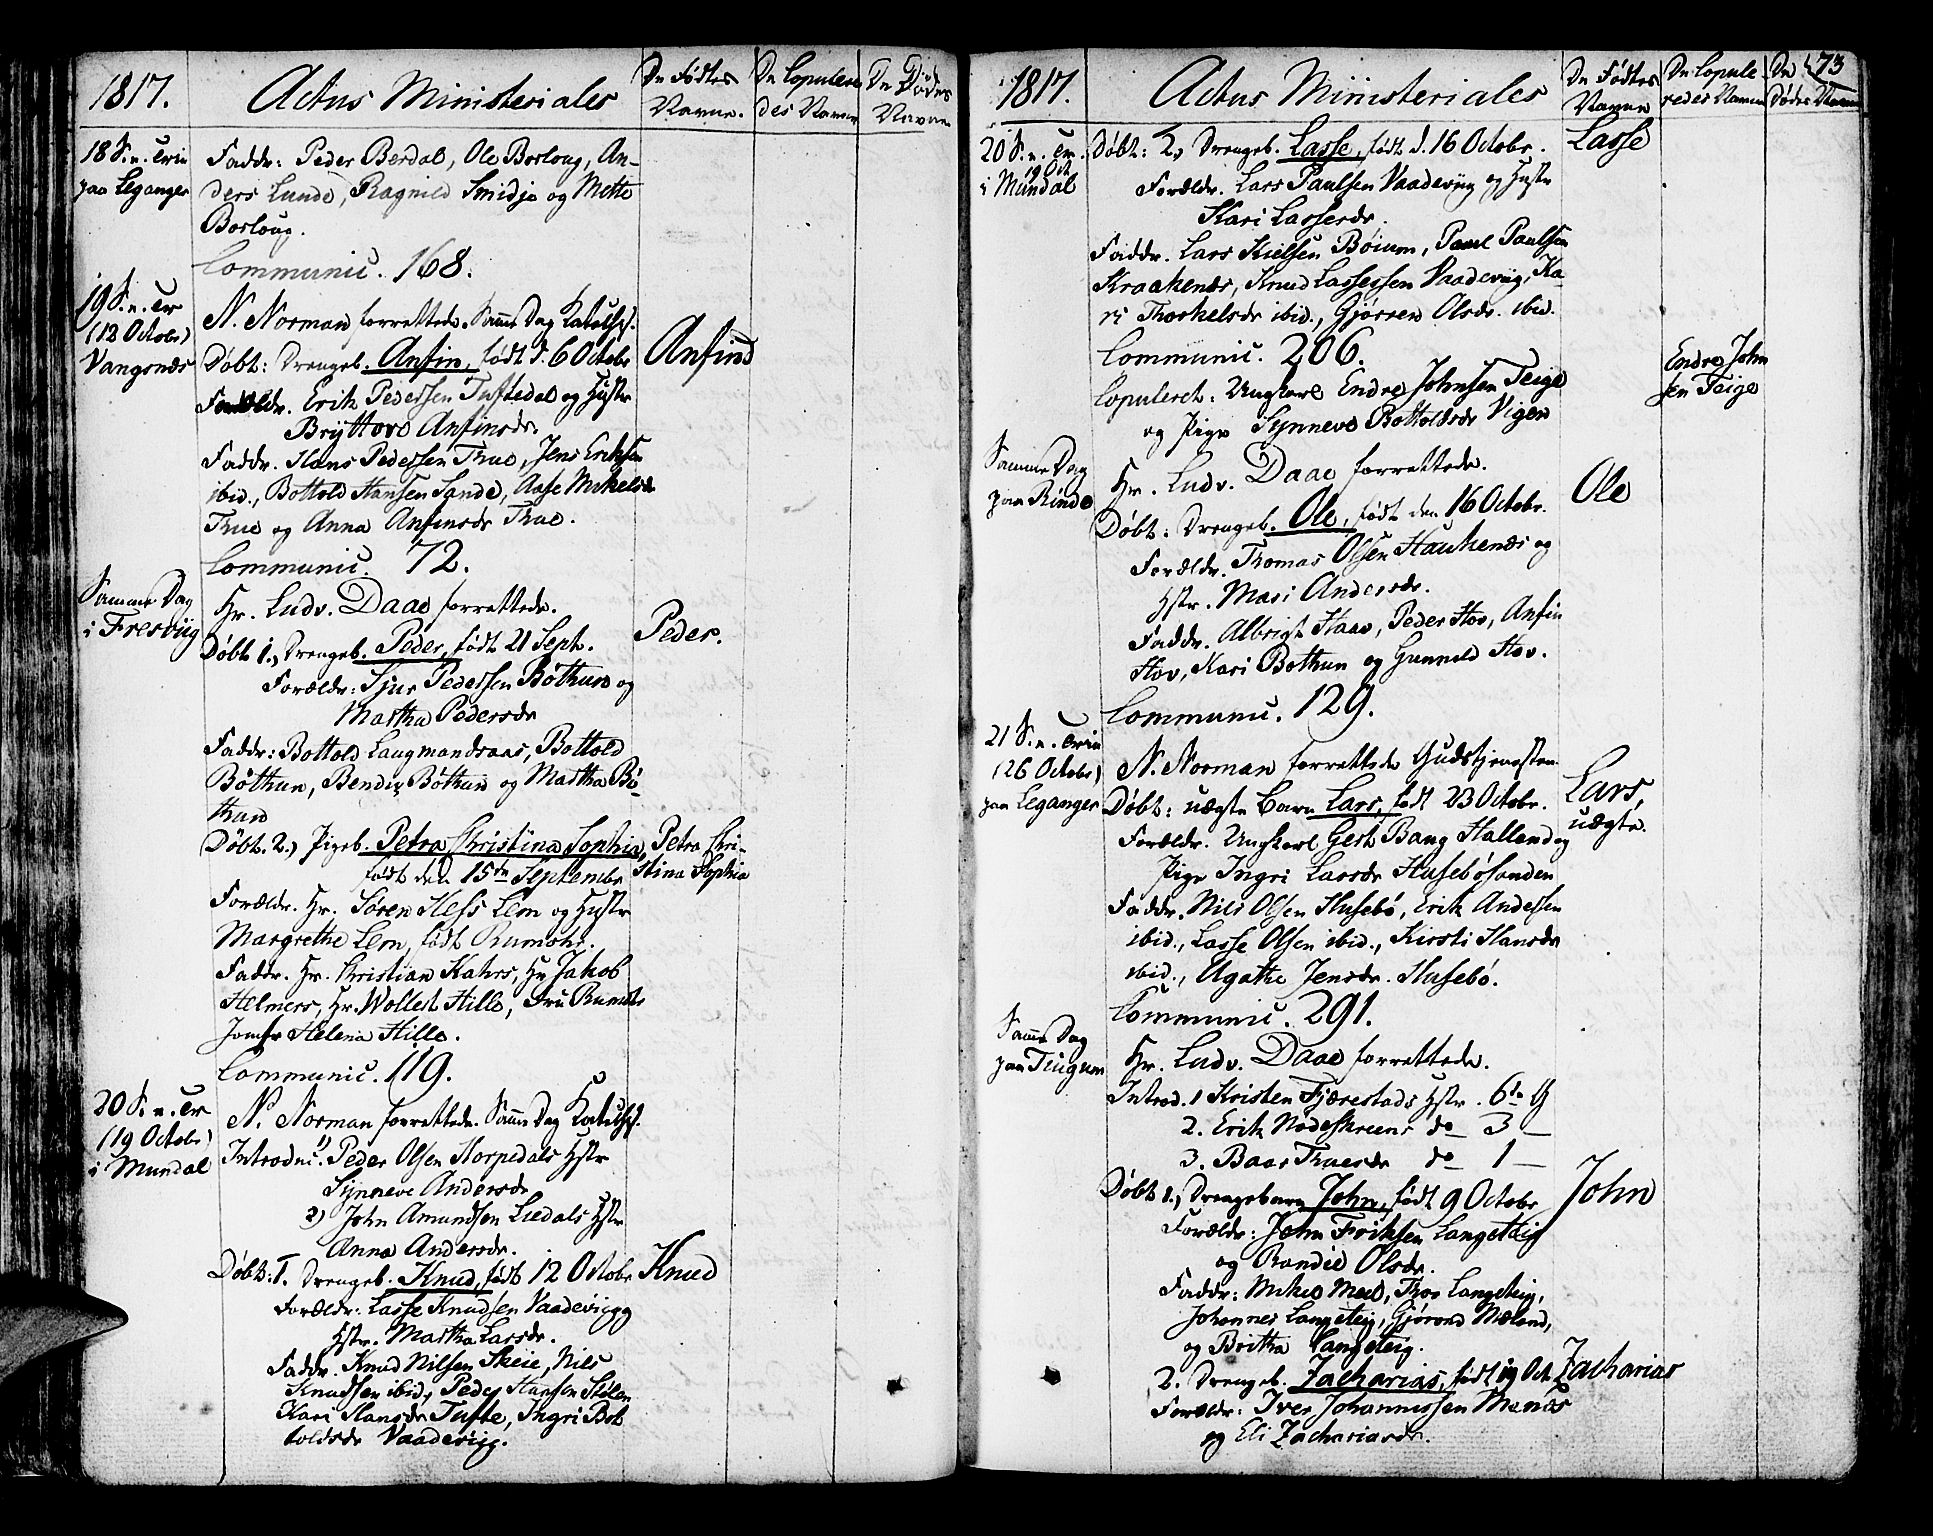 1817.
Actus Ministeriales
De Fødtes
Navne.
De Copulere
des Navne
De Dødes
Navne
18 S. n. Trin
paa Leganger
Faddr: Peder Berdal, Ole Borloug, An-
ders Lunde, Ragnild Smidje og Mette
Borloug.
Communic. 168.
19 S. n. Tr
(12 Octobr)
Vangsnæs
N. Norman forrettede. Samme Dag Katechis.
Døbt: Drengeb. Anfin, født d. 6 Octobr
Anfind
Forældr. Erik Pedersen Tuftedal og Hustr
Bryttove Anfinsdr.
Faddr. Hans Pedersen True, Jens Eriksen
ibid., Bottold Hansen Sande, Aase Mikelsdr
True og Anna Anfinsdr True.
Communic. 72.
Samme Dag
i Fresviig
Hr. Ludv. Daae forrettede.
Døbt 1., Drengeb. Peder, født 21 Sept.
Peder.
Forældr: Sjur Pedersen Bøthun og
Martha Pedersdr
Faddr: Bottold Laugmandsaas, Bottold
Bøthun, Bendix Bøthun og Martha Bø-
thun
Døbt. 2.) Pigeb. Petra Christina Sophia,
født den 15de Septembr
Petra Chri-
stina Sophia
Forældr. Hr. Søren Hess Lem og Hustr
Margrethe Lem, født Rumohr.
Faddr. Hr. Christian Kahrs, Hr Jakob
Helmers, Hr. Wollert Hille, Fru Rumohr
Jomfr Helena Hille.
Communic. 119.
20 S. n. Tr
(19 Octobr)
i Mundal
N. Norman forrettede. Samme Dag Katechis.
Introduc. 1) Peder Olsen Horpedals Hstr
Synneve Andersdr
2) John Amundsen Liedals Hstr
Anna Andersdr.
Døbt: 1. Drengeb. Knud, født 12 Octobr
Knud
Forældr: Lasse Knudsen Vaadeviig og
Hstr. Martha Larsdr.
Faddr. Knud Nilsen Skeie, Nils
Knudsen ibid, Peder Hansen Stølen
Kari Hansdr Tufte, Ingri Bot
toldsdr Vaadeviig.
1817.
Actus Ministeriales
De Fødtes
Navne
De Copule
redes Navne
De
Dødes Navne
73
20 S. n. Tr.
19 Oct
i Mundal
Døbt: 2, Drengeb. Lasse, født d. 16 Octobr.
Lasse
Forældr. Lars Paulsen Vaadeviig og Hustr
Kari Lassesdr.
Faddr. Lars Nielsen Bøium, Paul Paulsen
Kraakenæs, Knud Lassesen Vaadeviig, Ka-
ri Thorkelsdr ibid., Gjøren Olsdr. ibid.
Communic. 206.
Copuleret: Ungkarl Endre Johnsen Teige
og Pige Synneve Bottoldsdr Vigen
Endre John
sen Teige
Samme Dag
paa Rinde
Hr. Ludv. Daae forrettede.
Døbt: Drengeb. Ole, født den 16 Octobr.
Ole
Forældr. Thomas Olsen Haukenæs og
Hstr. Mari Andersdr.
Faddr. Albrigt Haav, Peder Hov, Anfin
Hov, Kari Bothun og Gunnild Hov.
Communic. 129.
21 S. n. Trin
(26 Octobr)
paa Leganger
N. Norman forrettede Gudstjenesten
Døbt: uægte Barn Lars, født 23 Octobr.
Lars,
uægte.
Forældr. Ungkarl Gert Bang Halland og
Pige Ingri Larsdr Husebøsanden
Faddr. Nils Olsen Husebø, Erik Andersen
ibid., Lasse Olsen ibid., Kirsti Hansdr
ibid., Agathe Jensdr. Husebø.
Communic. 291.
Samme Dag
paa Tiugum
Hr. Ludv. Daae forrettede.
Introd. 1 Kristen Fjærestads Hstr. 6te G
2. Erik Nødeskreens do 3 —
3. Baar Truesdr do 1 —
Døbt 1., Drengebarn John, født 9 Octobr
John
Forældr: John Eriksen Langeteig
og Randie Olsdr.
Faddr: Mikel Meel, Thor Langeteig,
Johannes Langeteig, Gjørond Mæland,
og Britha Langeteig.
2. Drengeb. Zacharias, født 19 Oct.
Zacharias
Forældr: Iver Johannessen Menes
og Eli Zachariasdr.